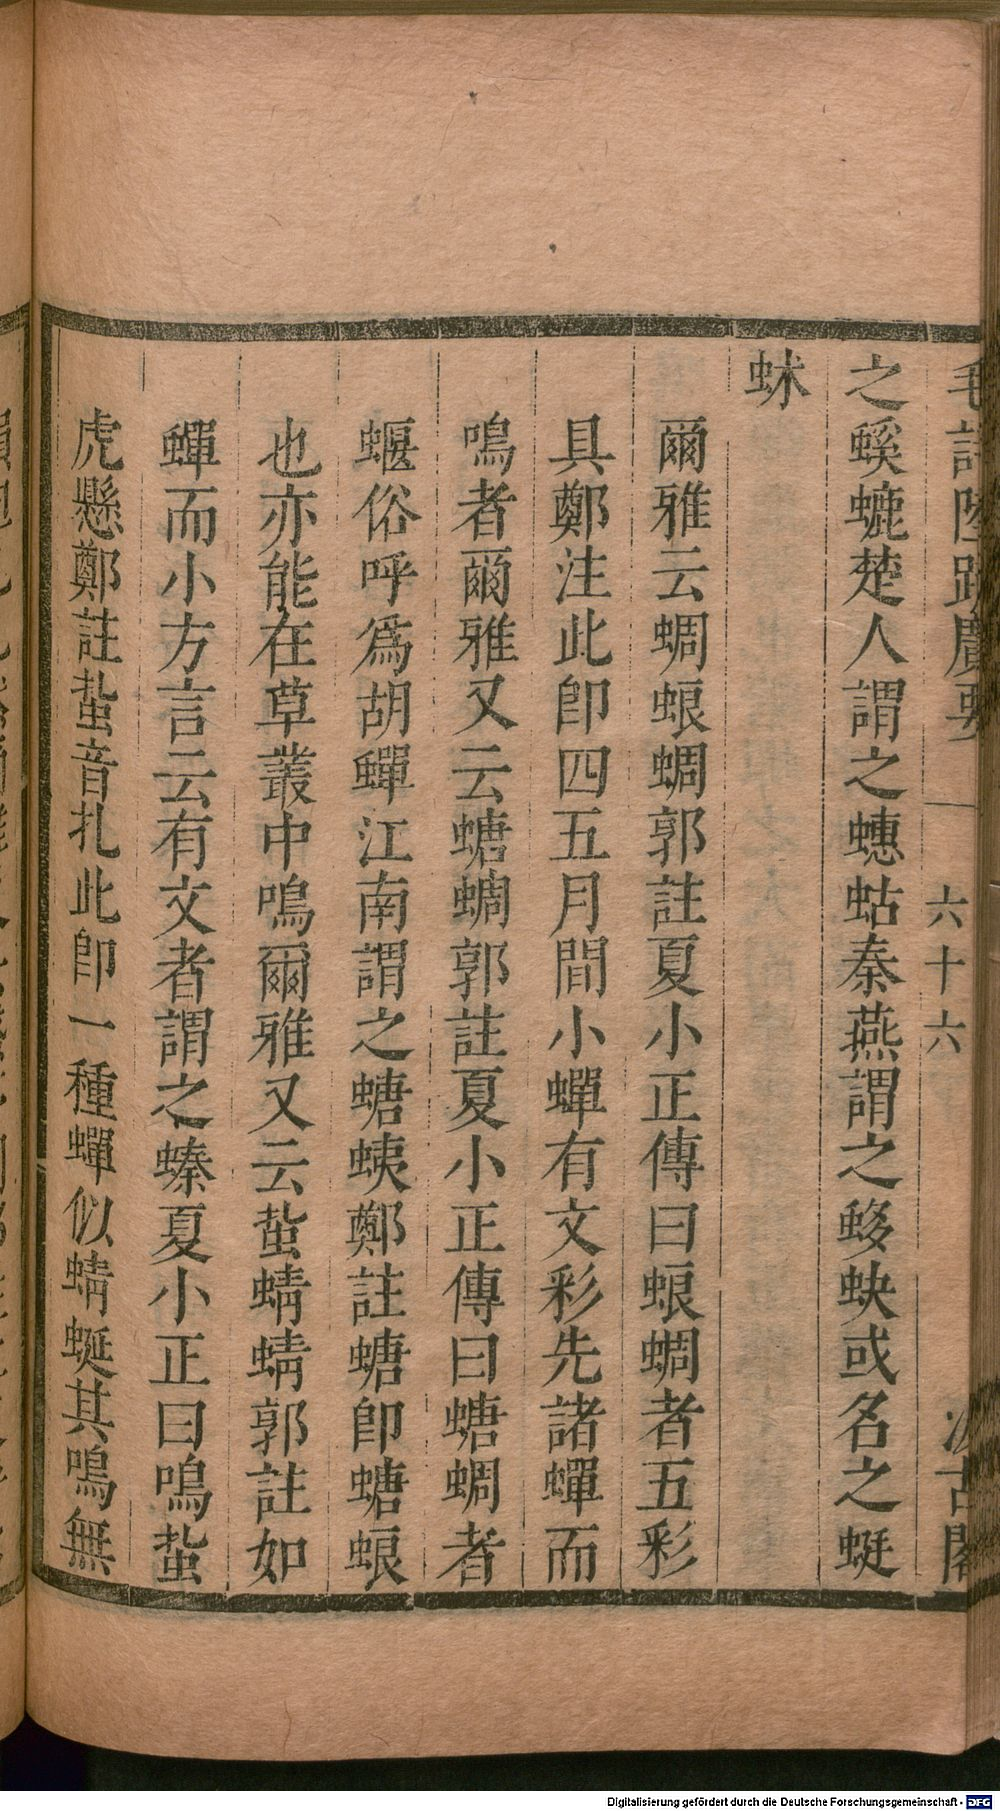 毛詩陸疏廣要
六十六
汲古閣
之蟋螰楚人謂之蟪蛄秦燕謂之蛥蚗或名之蜓
蚞
爾雅云蜩蜋蜩郭註夏小正傳曰蜋蜩者五彩
具鄭注此卽四五月間小蟬有文彩先諸蟬而
鳴者爾雅又云螗蜩郭註夏小正傳曰螗蜩者
蝘俗呼爲胡蟬江南謂之螗蛦鄭註螗卽螗蜋
也亦能在草叢中鳴爾雅又云蚻蜻蜻郭註如
蟬而小方言云有文者謂之螓夏小正曰鳴蚻
虎懸鄭註蚻音扎此卽一種蟬似蜻蜓其鳴無
Digitalisierung gefördert durch die Deutsche Forschungsgemeinschaft - DFG